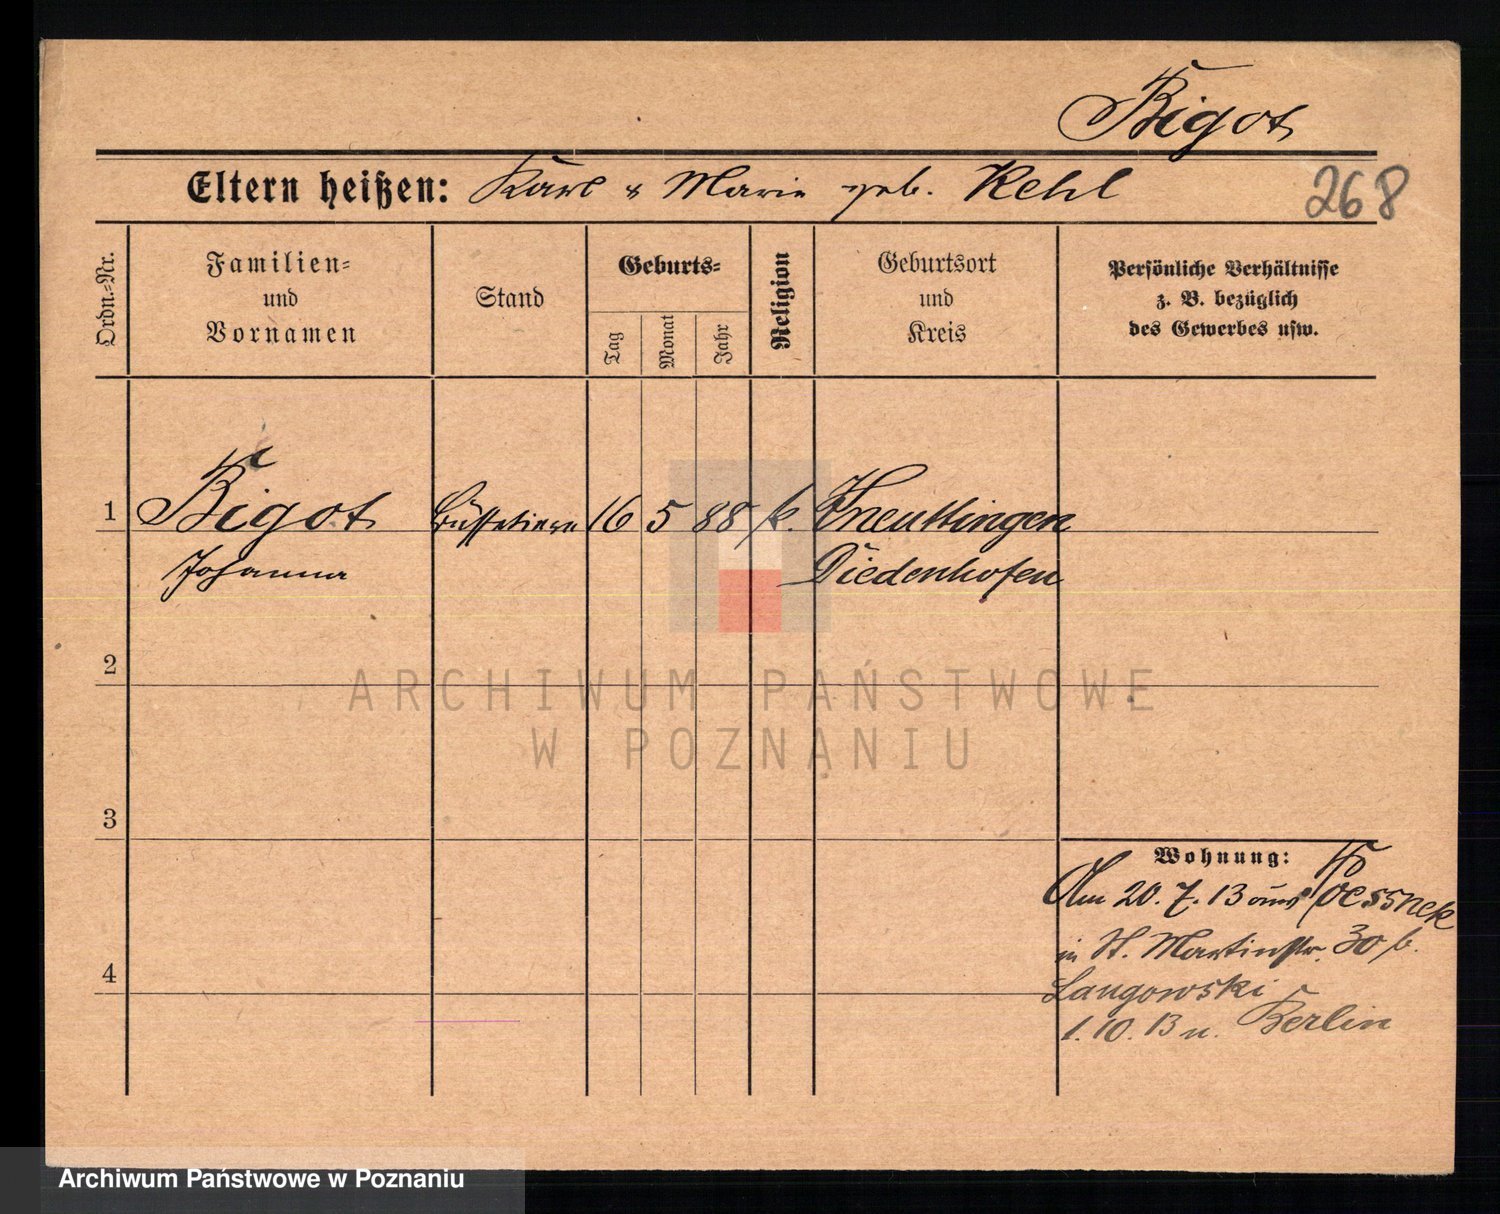 Bigot
Eltern heißen: Karl & Marie geb. Kehl
268
Ordn.-Nr.
Familien-
und
Vornamen
Stand
Geburts-
Tag
Monat
Jahr
Religion
Geburtsort
und
Kreis
Persönliche Verhältnisse
z. B. bezüglich
des Gewerbes usw.
1 Bigot Büffetiere 16 5 88 k. Kneuttingen
Johanna Diedenhofen
2
3
Wohnung:
Am 20. 7. 13 aus Poessnek
in St. Martinstr. 30 b.
4
Langowski
1. 10. 13 n. Berlin
ARCHIWUM PAŃSTWOWE
W POZNANIU
Archiwum Państwowe w Poznaniu